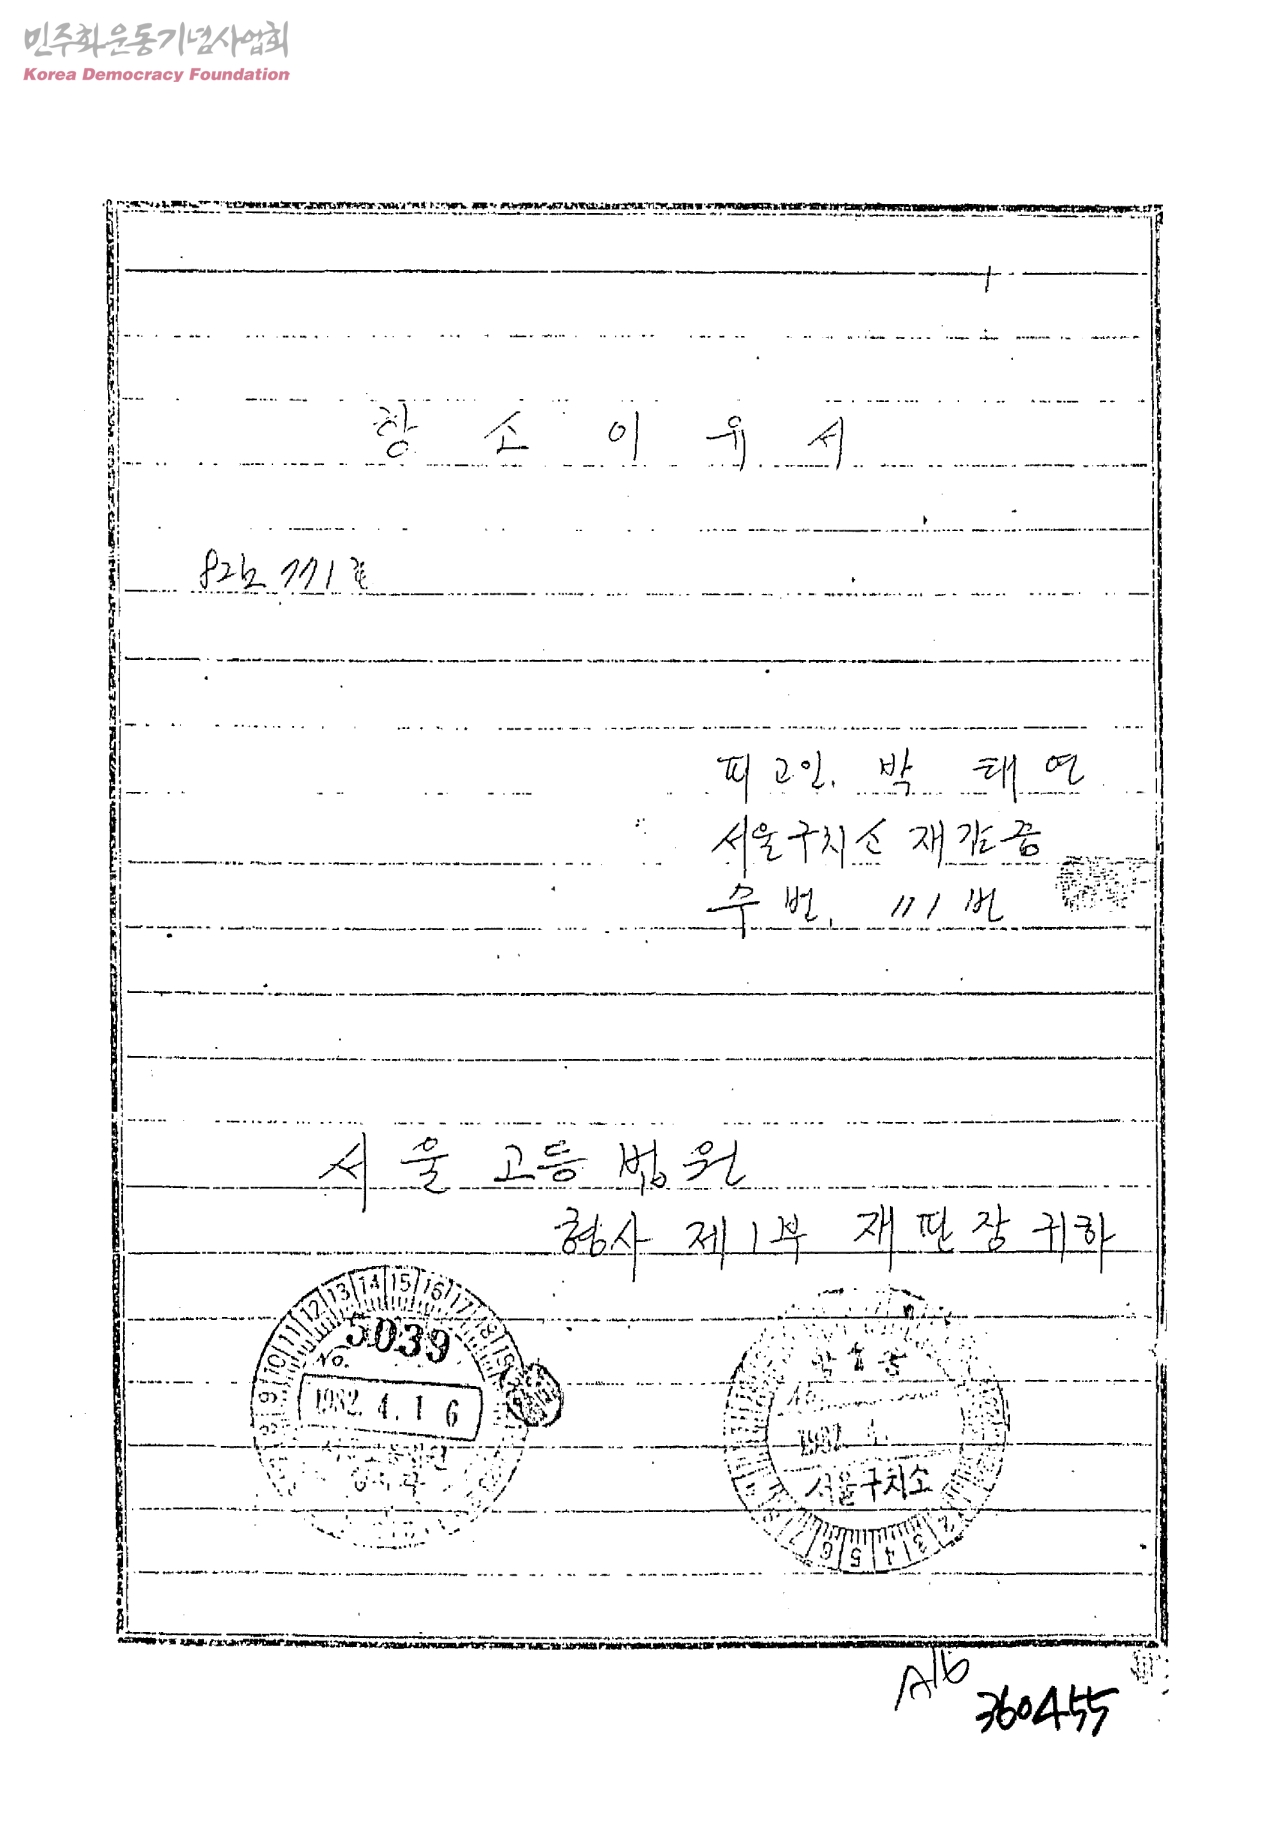 민주화운동기념사업회
Korea Democracy Foundation
항 소 이 유 서
82노 771호
피고인. 박 태 연
서울구치소 재감중
수번. 111번
서울 고등 법원
형사 제1부 재판장 귀하
8 9 10 11 12 13 14 15 16 17 18 19
No. 5039
1982. 4. 16
No.
1982. 4.
서울구치소
2 3 4 5 6 7 8
A16
360455